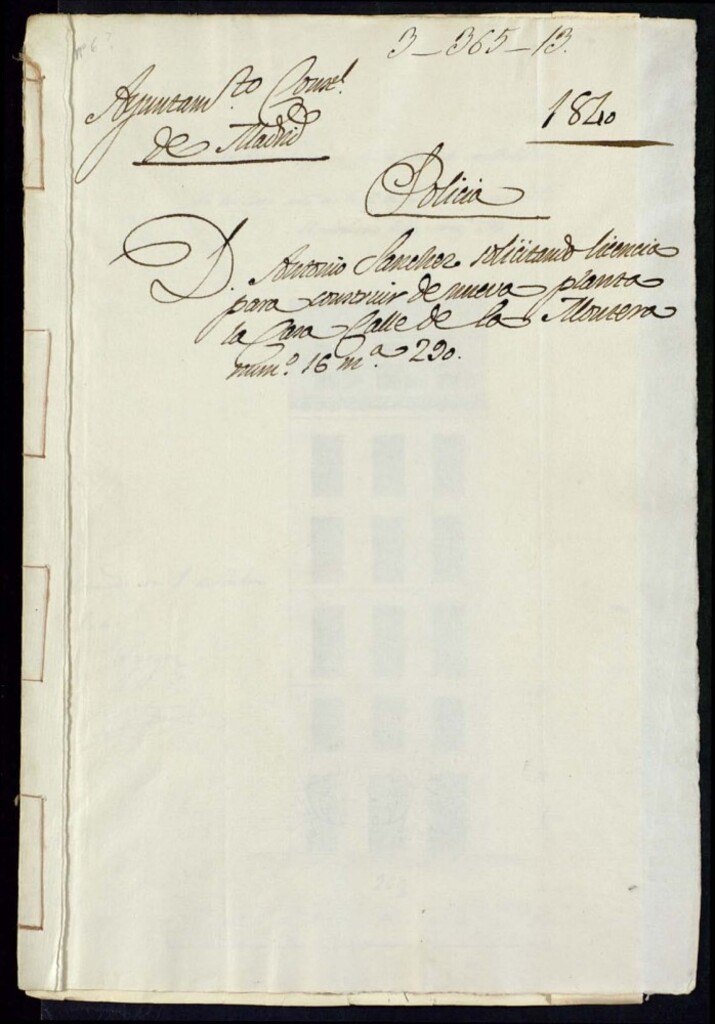 3-365-13.
Ayuntam.to Const.l
de Madrid
1840
Policia
D. Antonio Sanchez solicitando licencia
para construir de nueva planta
la Casa Calle de la Montera
num.o 16 m.a 290.